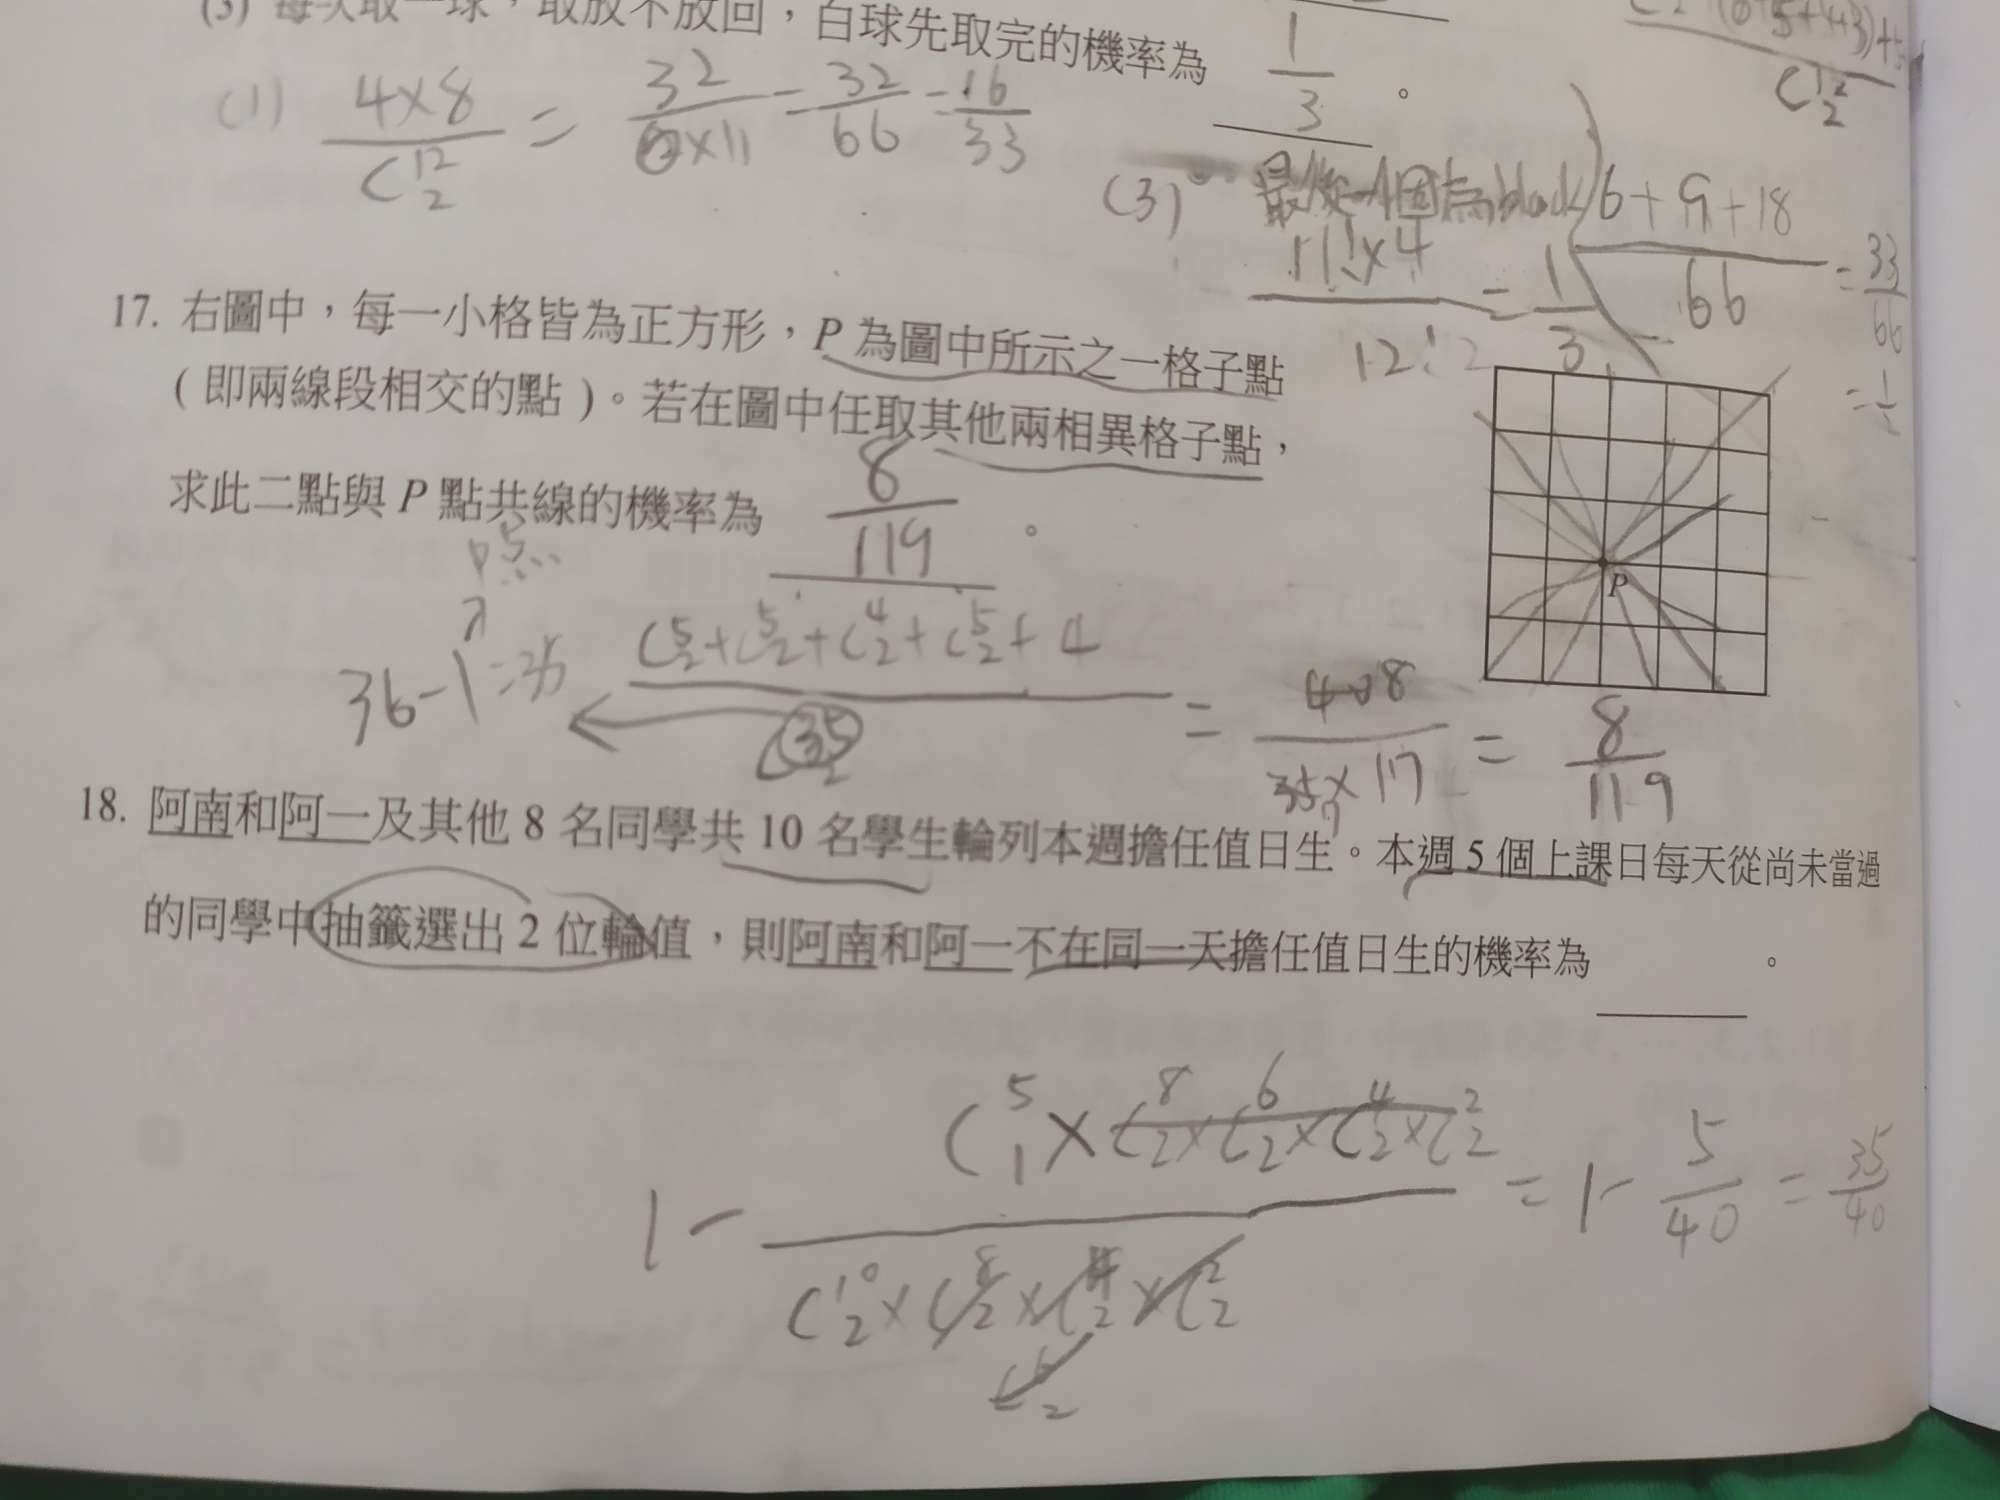 (3) 每次取一球，取放不放回，白球先取完的機率為 1/3 。
C12 2
(1) 4×8 / C12 2 = 32 / 6×11 = 32/66 = 16/33
(3) 最後一個為black
11!×4 / 12! = 1/3
6+9+18 / 66 = 33/66 = 1/2
17. 右圖中，每一小格皆為正方形，P 為圖中所示之一格子點
(即兩線段相交的點)。若在圖中任取其他兩相異格子點，
求此二點與 P 點共線的機率為 8/119 。
P
36-1=35
C5 2+C5 2+C4 2+C5 2+4 / C35 2 = 8 / 35×17 = 8/119
18. 阿南和阿一及其他 8 名同學共 10 名學生輪列本週擔任值日生。本週 5 個上課日每天從尚未當過
的同學中抽籤選出 2 位輪值，則阿南和阿一不在同一天擔任值日生的機率為 。
1- C5 1×C8 2×C6 2×C4 2×C2 2 / C10 2×C8 2×C4 2×C2 2 = 1- 5/40 = 35/40
C6 2